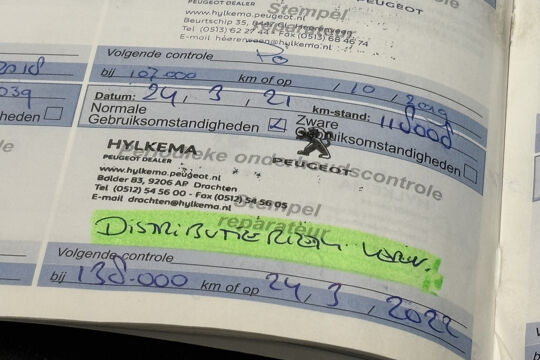 PEUGEOT DEALER
PEUGEOT
www.hylkema.peugeot.nl
Stempel
Tel (0513) 62 27 44 - Fax (0513) 68 46 74
E-mail heerenveen@hylkema.nl
Volgende controle
2018
bij 107.000 km of op / 10 / 2019
Datum: 24, 3, 21 km-stand: 118008
Normale Gebruiksomstandigheden
Zware Gebruiksomstandigheden
Periodieke onderhoudscontrole
HYLKEMA
PEUGEOT DEALER
PEUGEOT
www.hylkema.peugeot.nl
Bolder 83, 9206 AP Drachten
Tel (0512) 54 56 00 - Fax (0512) 54 56 05
E-mail drachten@hylkema.nl
Stempel
reparateur
DISTRIBUTIERIEM
Volgende controle
bij 138.000 km of op 24, 3, 2022